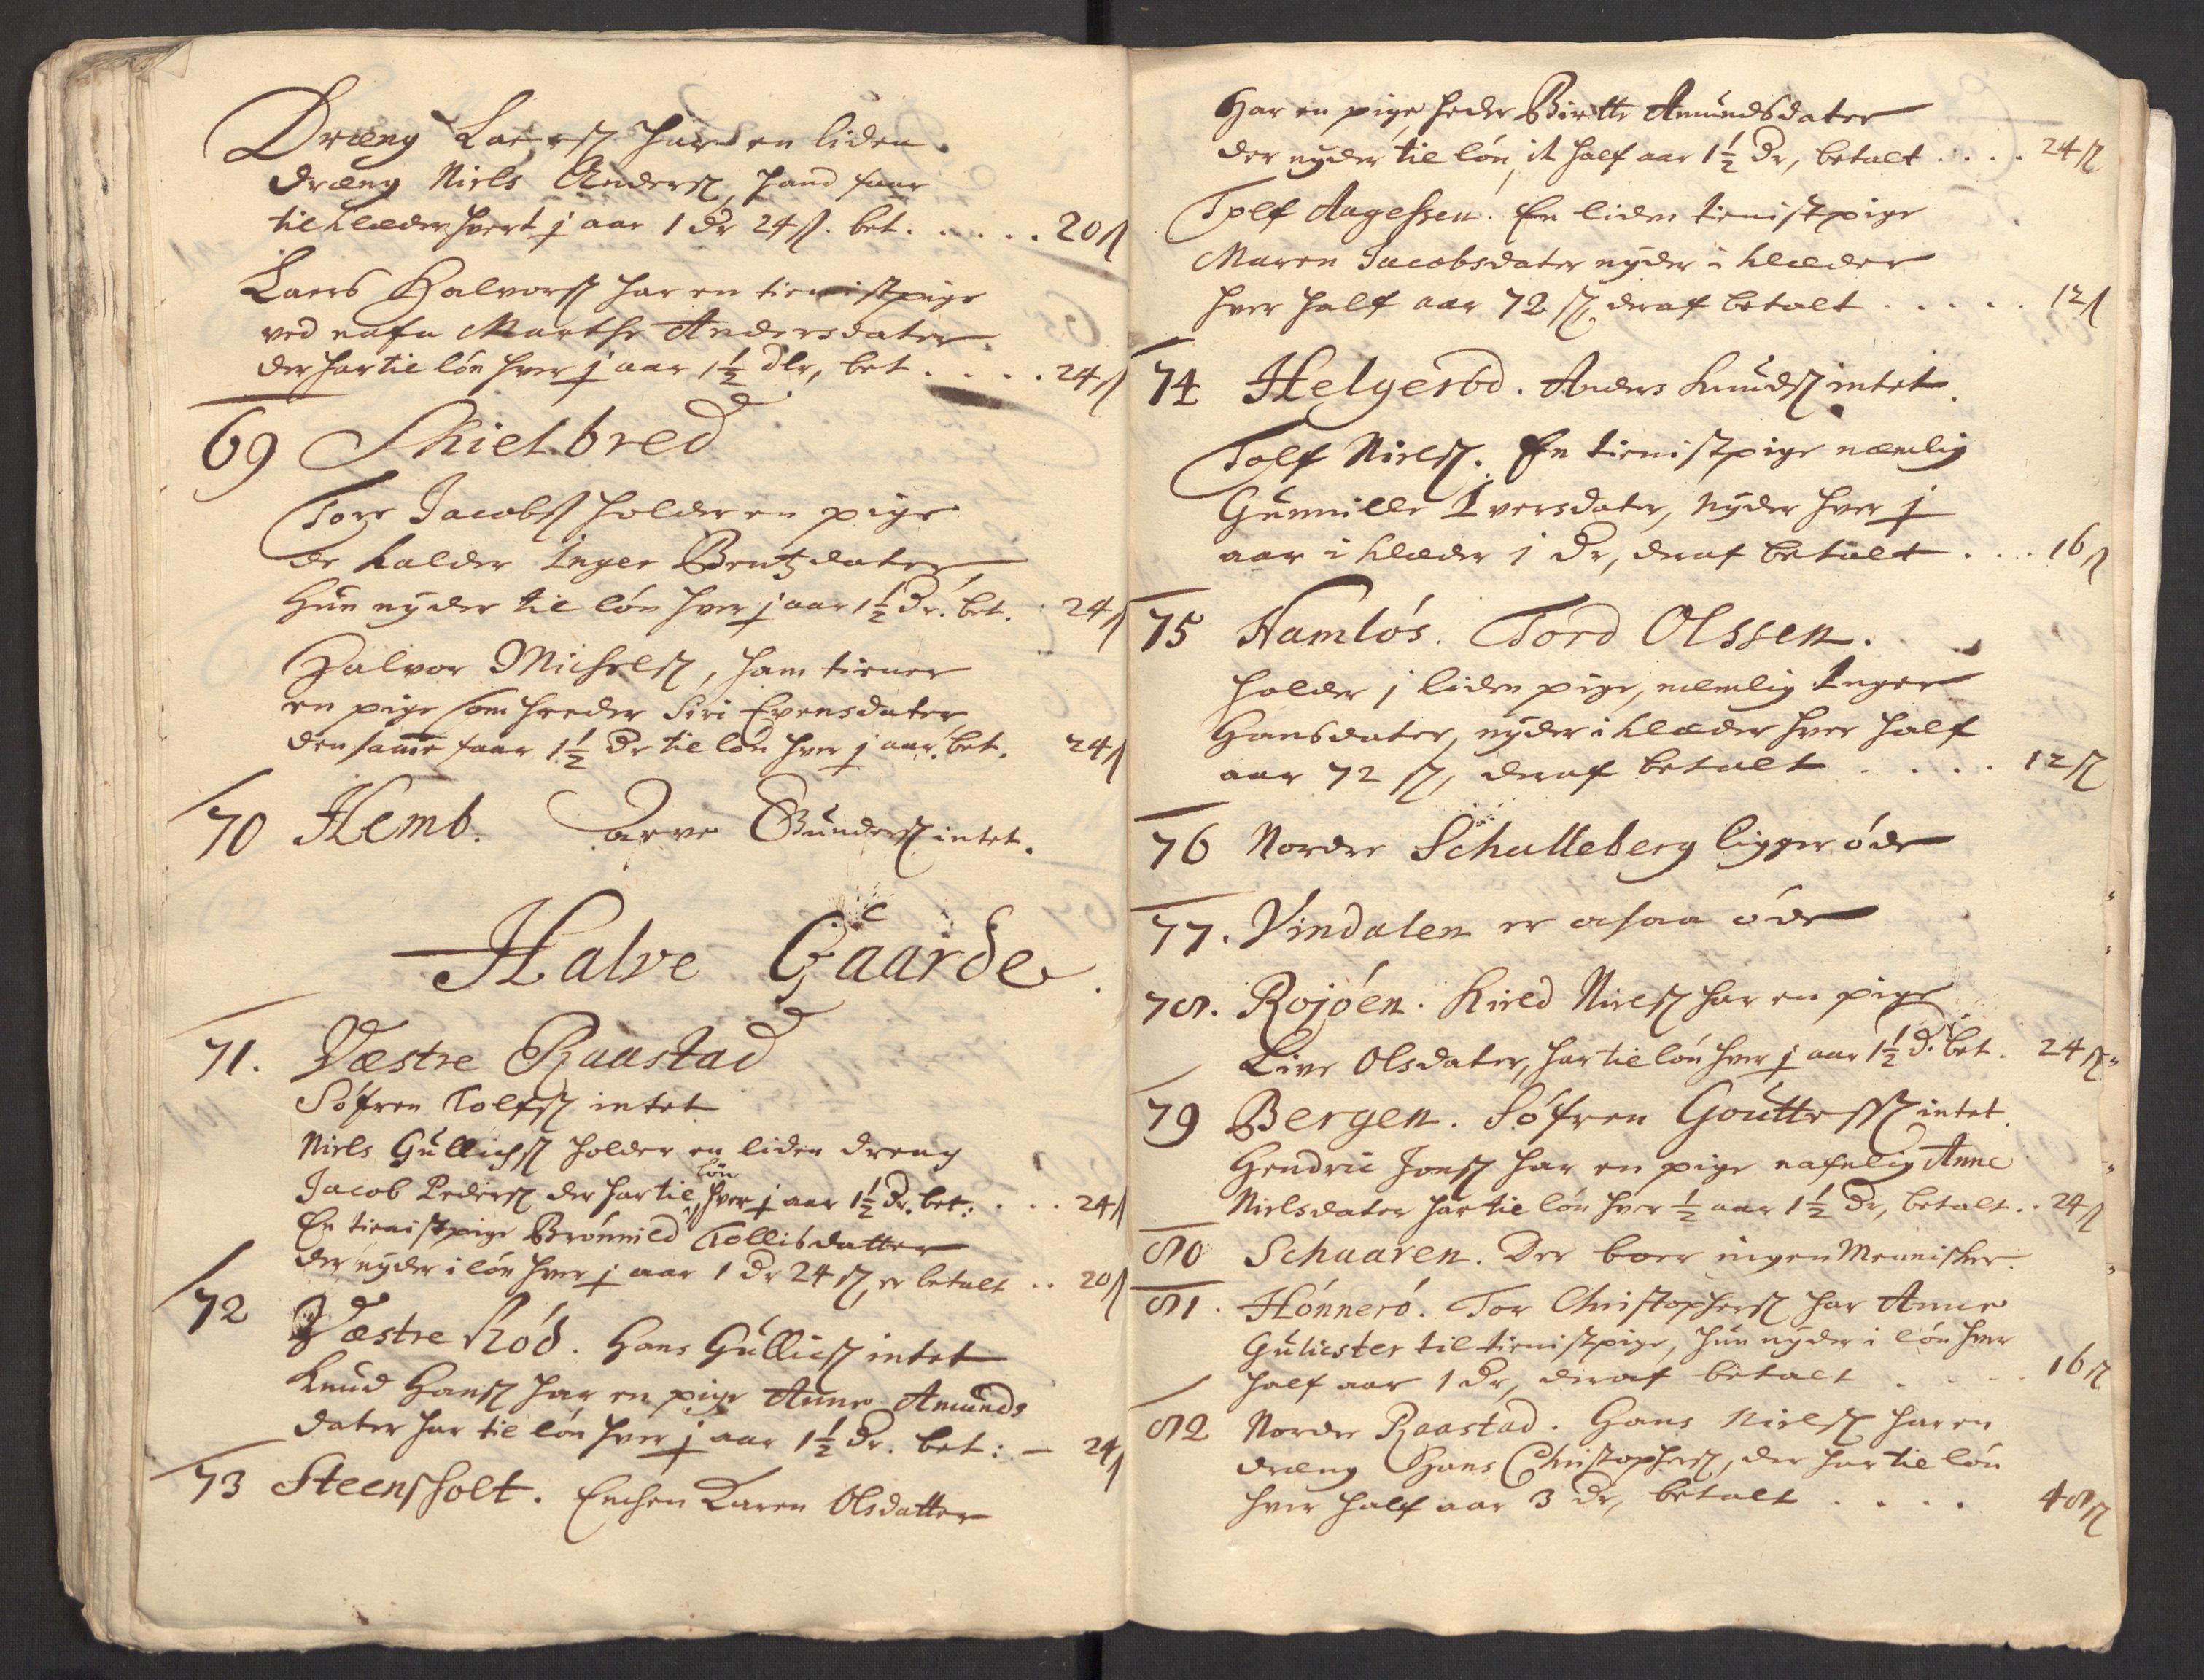 Dreng Laersß har en liden
dreng Niels Andersß, hand faar
til klæder hvert j aar 1 dr 24 ß. bet. . . . . . 20 ß
Laers Halvorsß har en tienistpige
ved nafn Marthe Andersdater
der har til lón hver j aar 1½ dlr, bet . . . . 24 ß
69 Skielbred
Tore Jacobsß holder en pige
de kalder Inger Bentzdater,
Hun nyder til lón hver j aar 1½ dr. bet. . 24 ß
Halvor Michelsß, ham tiener
en pige som heeder Siri Evensdater
den samme faar 1½ dr til lón hver j aar. bet. 24 ß
70 Hemb. Gundersß intet.
Halve Gaarde.
71. Væstre Raastad
Sófren Tolfsß intet
Niels Gullichsß holder en liden dreng
Jacob Pedersß der har til lón hver j aar 1½ dr. bet: . . . 24 ß
En tienistpige Brónnild Tollisdatter
der nyder i lón hver j aar 1 dr 24 ß, er betalt . . 20 ß
72 Væstre Ród. Hans Gullicsß intet
Knud Hansß har en pige Anne Amunds
dater har til lón hver j aar 1½ dr. bet: — 24 ß
73 Steensholt. Enchen Karen Olsdatter
Har en pige heder Birtte Amundsdater
der nyder til lón it half aar 1½ dr, betalt . . . . 24 ß
Tolf Aagessen. En liden tienistpige
Maren Jacobsdater nyder i klæder
hver half aar 72 ß, deraf betalt . . . . . 12 ß
74 Helgeród. Anders Knudsß intet.
Tolf Nielsß. En tienistpige nemlig
Gunnille Iversdater, nyder hver j
aar i klæder 1 dr, deraf betalt . . . 16 ß
75 Namlós. Tord Olssen.
holder j liden pige, nemlig Inger
Hansdater, nyder i klæder hver half
aar 72 ß, deraf betalt . . . . . 12 ß
76 Nordre Schulleberg ligger óde
77. Vindalen er osaa óde
78. Rojóen. Kield Nielsß har en pige
Live Olsdater, har til lón hver j aar 1½ d. bet. 24 ß
79 Bergen. Sófren Gouttesß intet.
Hendric Jonsß har en pige nafnlig Anne
Nielsdater har til lón hver ½ aar 1½ dr, betalt. . 24 ß
80 Schaaren. Der boer ingen Mennisker.
81. Hónneró. Tor Christophersß har Anne
Gulicster til tienistpige, hun nyder i lón hver
half aar 1 dr, deraf betalt . . . . 16 ß
82 Nordre Raastad. Hans Nielsß har en
dreng Hans Christophersß, der har til lón
hver half aar 3 dr, betalt . . . . 48 ß